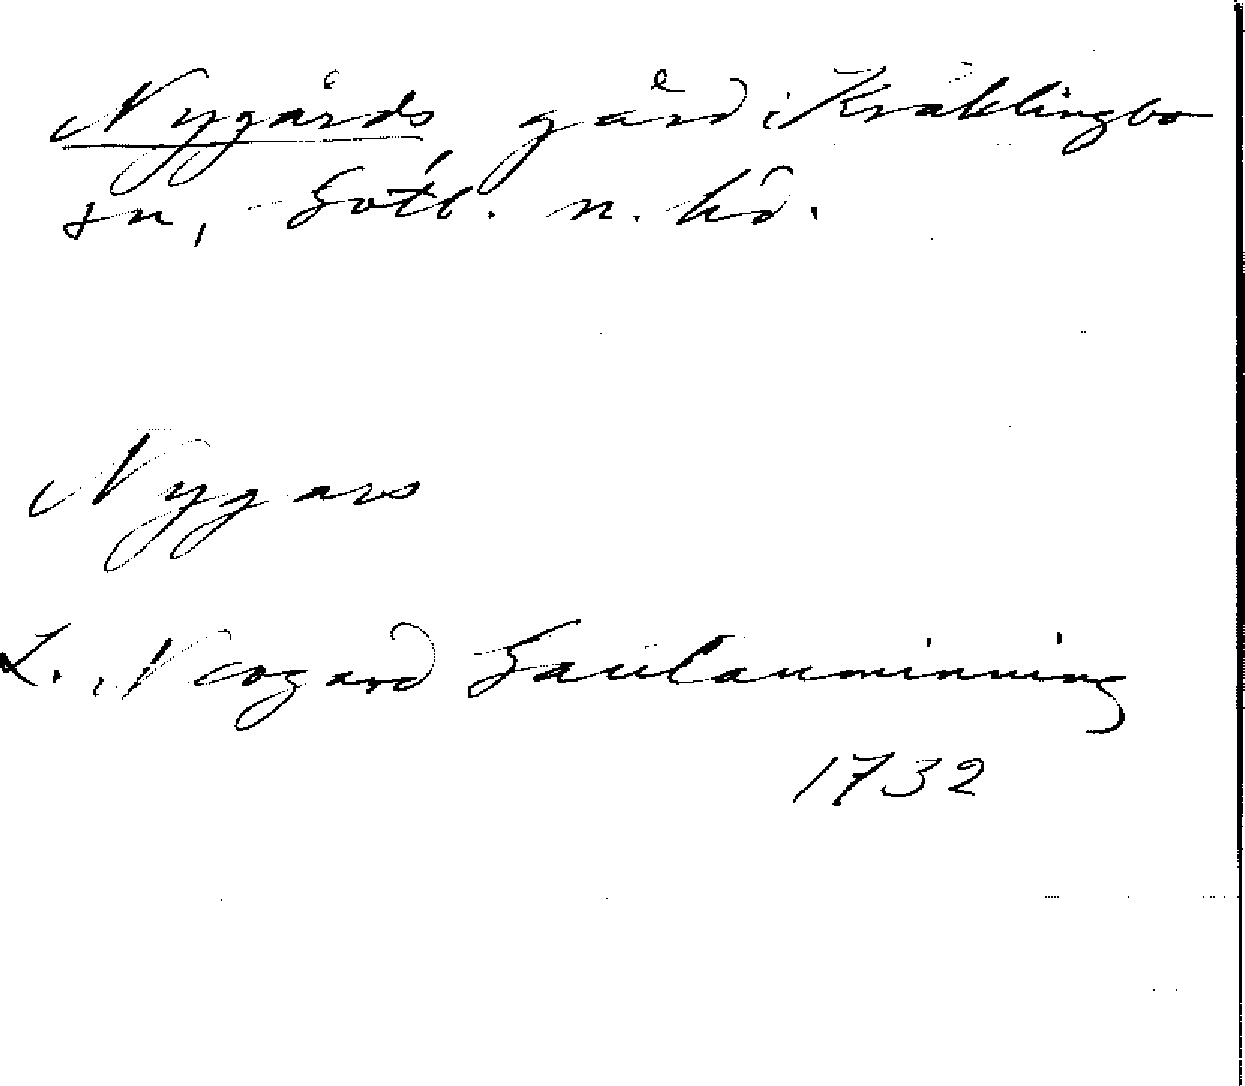 Nygårds gård i Kräklingbo
sn, Gotl. n. hd.
Nygars
L. Neogard Gaulauminning
1732